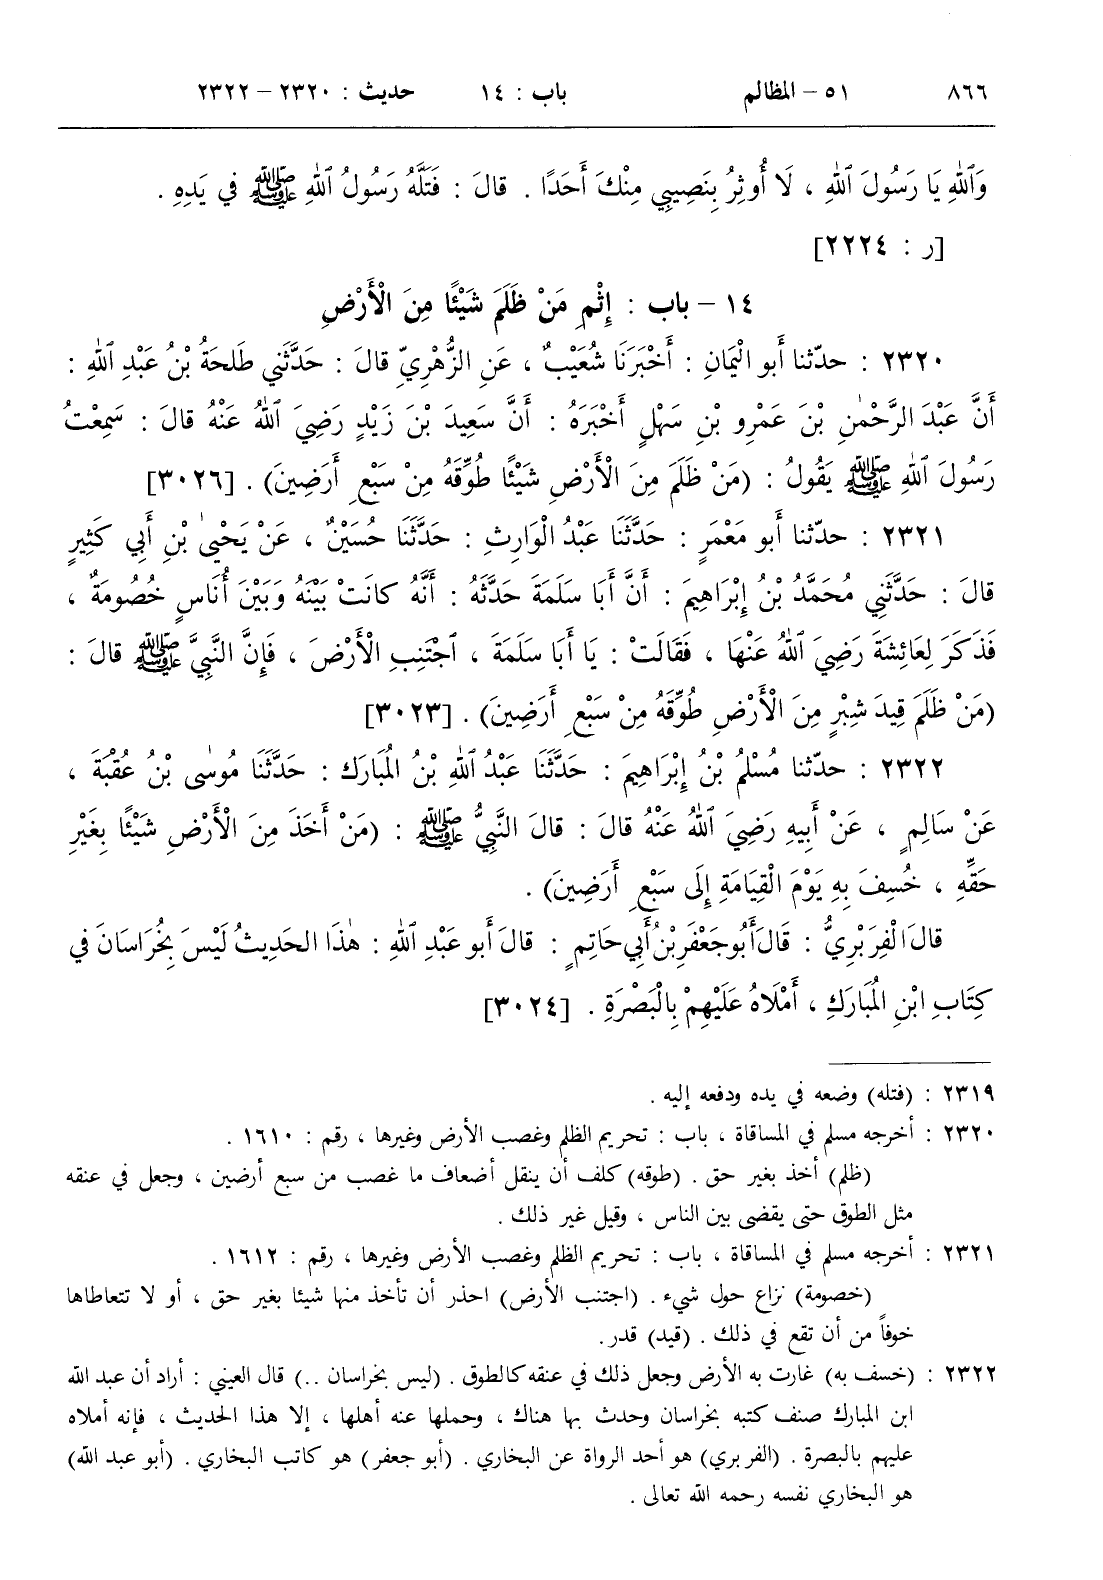 ٨٦٦ ٥١ – المظالم باب : ١٤ حديث : ٢٣٢٠ – ٢٣٢٢
وَٱللهِ يَا رَسُولَ ٱللهِ ، لَا أُوثِرُ بِنَصِيبِي مِنْكَ أَحَدًا . قالَ : فَتَلَّهُ رَسُولُ ٱللهِ ﷺ في يَدِهِ .
[ر : ٢٢٢٤]
١٤ – باب : إِثْمِ مَنْ ظَلَمَ شَيْئًا مِنَ الْأَرْضِ
٢٣٢٠ : حدّثنا أَبو الْيَمَانِ : أَخْبَرَنَا شُعَيْبٌ ، عَنِ الزُّهْرِيِّ قالَ : حَدَّثَنِي طَلحَةُ بْنُ عَبْدِ ٱللهِ :
أَنَّ عَبْدَ الرَّحْمٰنِ بْنَ عَمْرِو بْنِ سَهْلٍ أَخْبَرَهُ : أَنَّ سَعِيدَ بْنَ زَيْدٍ رَضِيَ ٱللهُ عَنْهُ قالَ : سَمِعْتُ
رَسُولَ ٱللهِ ﷺ يَقُولُ : (مَنْ ظَلَمَ مِنَ الْأَرْضِ شَيْئًا طُوِّقَهُ مِنْ سَبْعِ أَرَضِينَ) . [٣٠٢٦]
٢٣٢١ : حدّثنا أَبو مَعْمَرٍ : حَدَّثَنَا عَبْدُ الْوَارِثِ : حَدَّثَنَا حُسَيْنٌ ، عَنْ يَحْيىٰ بْنِ أَبِي كَثِيرٍ
قالَ : حَدَّثَنِي مُحَمَّدُ بْنُ إِبْرَاهِيمَ : أَنَّ أَبَا سَلَمَةَ حَدَّثَهُ : أَنَّهُ كانَتْ بَيْنَهُ وَبَيْنَ أُنَاسٍ خُصُومَةٌ ،
فَذَكَرَ لِعَائِشَةَ رَضِيَ ٱللهُ عَنْهَا ، فَقَالَتْ : يَا أَبَا سَلَمَةَ ، ٱجْتَنِبِ الْأَرْضَ ، فَإِنَّ النَّبِيَّ ﷺ قالَ :
(مَنْ ظَلَمَ قِيدَ شِبْرٍ مِنَ الْأَرْضِ طُوِّقَهُ مِنْ سَبْعِ أَرَضِينَ) . [٣٠٢٣]
٢٣٢٢ : حدّثنا مُسْلِمُ بْنُ إِبْرَاهِيمَ : حَدَّثَنَا عَبْدُ ٱللهِ بْنُ الْمُبَارَكِ : حَدَّثَنَا مُوسٰى بْنُ عُقْبَةَ ،
عَنْ سَالِمٍ ، عَنْ أَبِيهِ رَضِيَ ٱللهُ عَنْهُ قالَ : قالَ النَّبِيُّ ﷺ : (مَنْ أَخَذَ مِنَ الْأَرْضِ شَيْئًا بِغَيْرِ
حَقِّهِ ، خُسِفَ بِهِ يَوْمَ الْقِيَامَةِ إِلَى سَبْعِ أَرَضِينَ) .
قالَ الْفِرَبْرِيُّ : قَالَ أَبُو جَعْفَرِ بْنُ أَبِي حَاتِمٍ : قالَ أَبو عَبْدِ ٱللهِ : هٰذَا الحَدِيثُ لَيْسَ بِخُرَاسَانَ في
كِتَابِ ابْنِ الْمُبَارَكِ ، أَمْلَاهُ عَلَيْهِمْ بِالْبَصْرَةِ . [٣٠٢٤]
٢٣١٩ : (فتله) وضعه في يده ودفعه إليه .
٢٣٢٠ : أخرجه مسلم في المساقاة ، باب : تحريم الظلم وغصب الأرض وغيرها ، رقم : ١٦١٠ .
(ظلم) أخذ بغير حق . (طوقه) كلف أن ينقل أضعاف ما غصب من سبع أرضين ، وجعل في عنقه
مثل الطوق حتى يقضى بين الناس ، وقيل غير ذلك .
٢٣٢١ : أخرجه مسلم في المساقاة ، باب : تحريم الظلم وغصب الأرض وغيرها ، رقم : ١٦١٢ .
(خصومة) نزاع حول شيء . (اجتنب الأرض) احذر أن تأخذ منها شيئا بغير حق ، أو لا تتعاطاها
خوفاً من أن تقع في ذلك . (قيد) قدر.
٢٣٢٢ : (خسف به) غارت به الأرض وجعل ذلك في عنقه كالطوق . (ليس بخراسان ..) قال العيني : أراد أن عبد الله
ابن المبارك صنف كتبه بخراسان وحدث بها هناك ، وحملها عنه أهلها ، إلا هذا الحديث ، فإنه أملاه
عليهم بالبصرة . (الفربري) هو أحد الرواة عن البخاري . (أبو جعفر) هو كاتب البخاري . (أبو عبد الله)
هو البخاري نفسه رحمه الله تعالى .